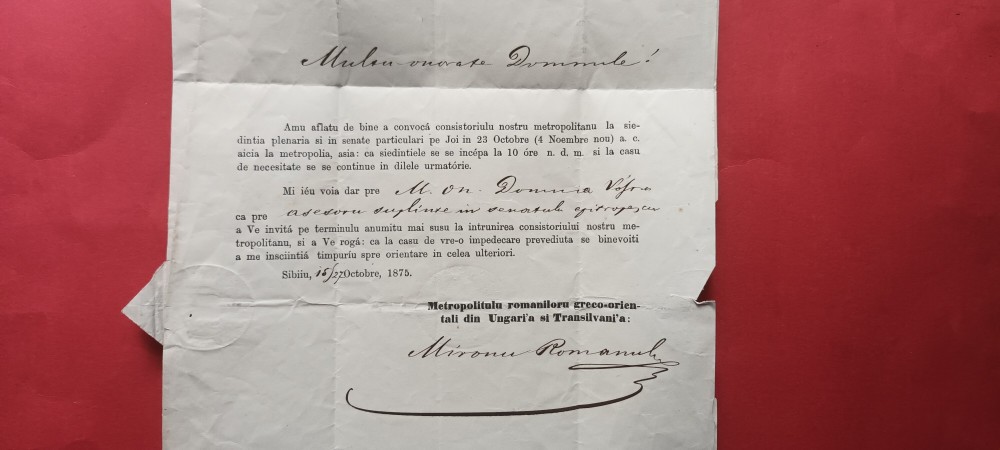 Multu onorate Domnule!
Amu aflatu de bine a convocá consistoriulu nostru metropolitanu la sie-
dintia plenaria si in senate particulari pe Joi in 23 Octobre (4 Noembre nou) a. c.
aicia la metropolia, asia: ca siedintiele se se incépa la 10 óre n. d. m. si la casu
de necesitate se se continue in dilele urmatórie.
Mi iéu voia dar pre M. On. Domnia Vóstra
ca pre asesoru suplinte in senatulu epitropescu
a Ve invitá pe terminulu anumitu mai susu la intrunirea consistoriului nostru me-
tropolitanu, si a Ve rogá: ca la casu de vre-o impedecare prevediuta se binevoiti
a me insciintiá timpuriu spre orientare in celea ulteriori.
Sibiiu, 15/27 Octobre, 1875.
Metropolitulu romaniloru greco-orien-
tali din Ungari'a si Transilvani'a:
Mironu Romanulu